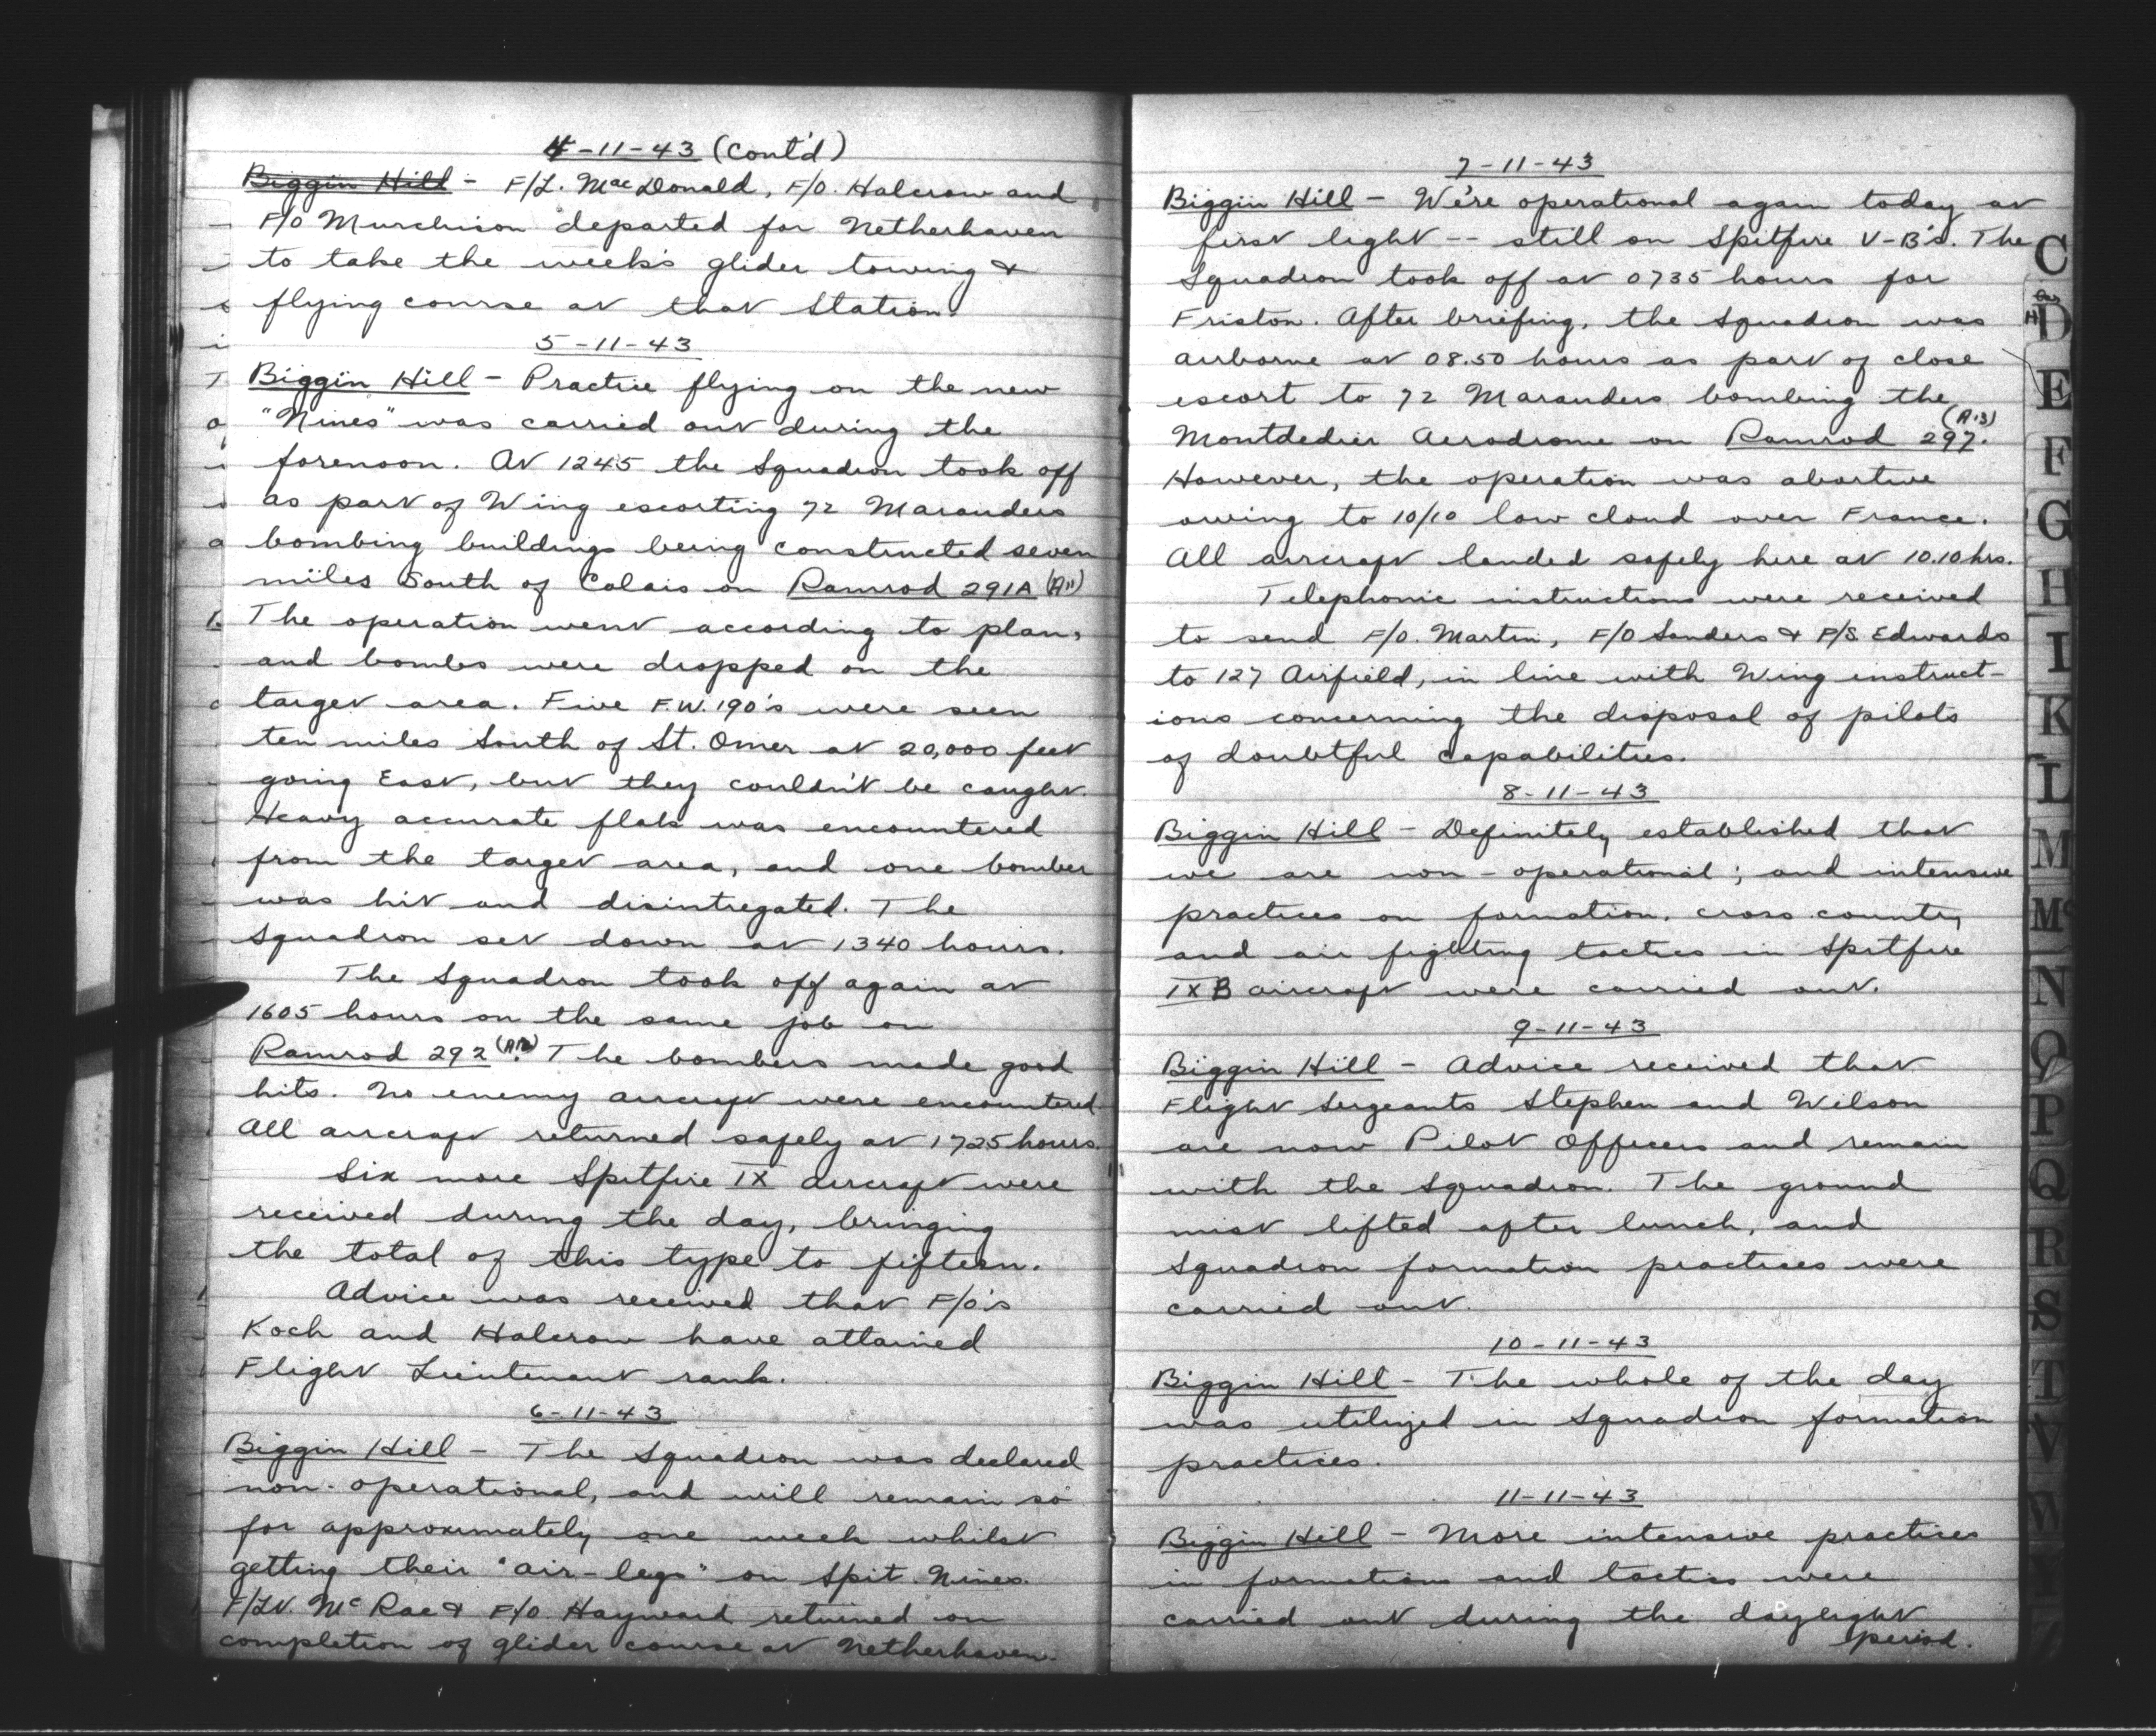 4-11-43 (Cont'd)
Biggin Hill - F/L. MacDonald, F/O. Halcrow and
F/O Murchison departed for Netherhaven
to take the week's glider towing &
flying course at that Station.
5-11-43
Biggin Hill - Practice flying on the new
"Nines" was carried out during the
forenoon. At 1245 the Squadron took off
as part of Wing escorting 72 Marauders
bombing buildings being constructed seven
miles South of Calais on Ramrod 291A (A11)
The operation went according to plan,
and bombs were dropped on the
target area. Five F.W.190's were seen
ten miles South of St. Omer at 20,000 feet
going East, but they couldn't be caught.
Heavy accurate flak was encountered
from the target area, and one bomber
was hit and disintregated. The
Squadron set down at 1340 hours.
The Squadron took off again at
1605 hours on the same job on
Ramrod 292 (A12). The bombers made good
hits. No enemy aircraft were encountered
All aircraft returned safely at 1725 hours.
Six more Spitfire IX aircraft were
received during the day, bringing
the total of this type to fifteen.
Advice was received that F/O's
Koch and Halcrow have attained
Flight Lieutenant rank.
6-11-43
Biggin Hill - The Squadron was declared
non-operational, and will remain so
for approximately one week whilst
getting their "air-legs" on Spit. Nines.
F/Lt. McRae & F/O Hayward returned on
completion of glider course at Netherhaven.
7-11-43
Biggin Hill - We're operational again today at
first light -- still on Spitfire V-B's. The
Squadron took off at 0735 hours for
Friston. After briefing, the Squadron was
airborne at 08.50 hours as part of close
escort to 72 Marauders bombing the
Montdedier Aerodrome on Ramrod 297. (A13)
However, the operation was abortive
owing to 10/10 low cloud over France.
All aircraft landed safely here at 10.10 hrs.
Telephonic instructions were received
to send F/O. Martin, F/O Sanders & F/S Edwards
to 127 Airfield, in line with Wing instruct-
ions concerning the disposal of pilots
of doubtful capabilities.
8-11-43
Biggin Hill - Definitely established that
we are non-operational; and intensive
practices on formation, cross country
and air fighting tactics in Spitfire
IXB aircraft were carried out.
9-11-43
Biggin Hill - Advice received that
Flight Sergeants Stephen and Wilson
are now Pilot Officers and remain
with the Squadron. The ground
mist lifted after lunch, and
Squadron formation practices were
carried out.
10-11-43
Biggin Hill - The whole of the day
was utilized in Squadron formation
practices.
11-11-43
Biggin Hill - More intensive practices
in formations and tactics were
carried out during the daylight
period.
C
D
E
F
G
H
I
K
L
M
Mc
N
O
P
Q
R
S
T
V
W